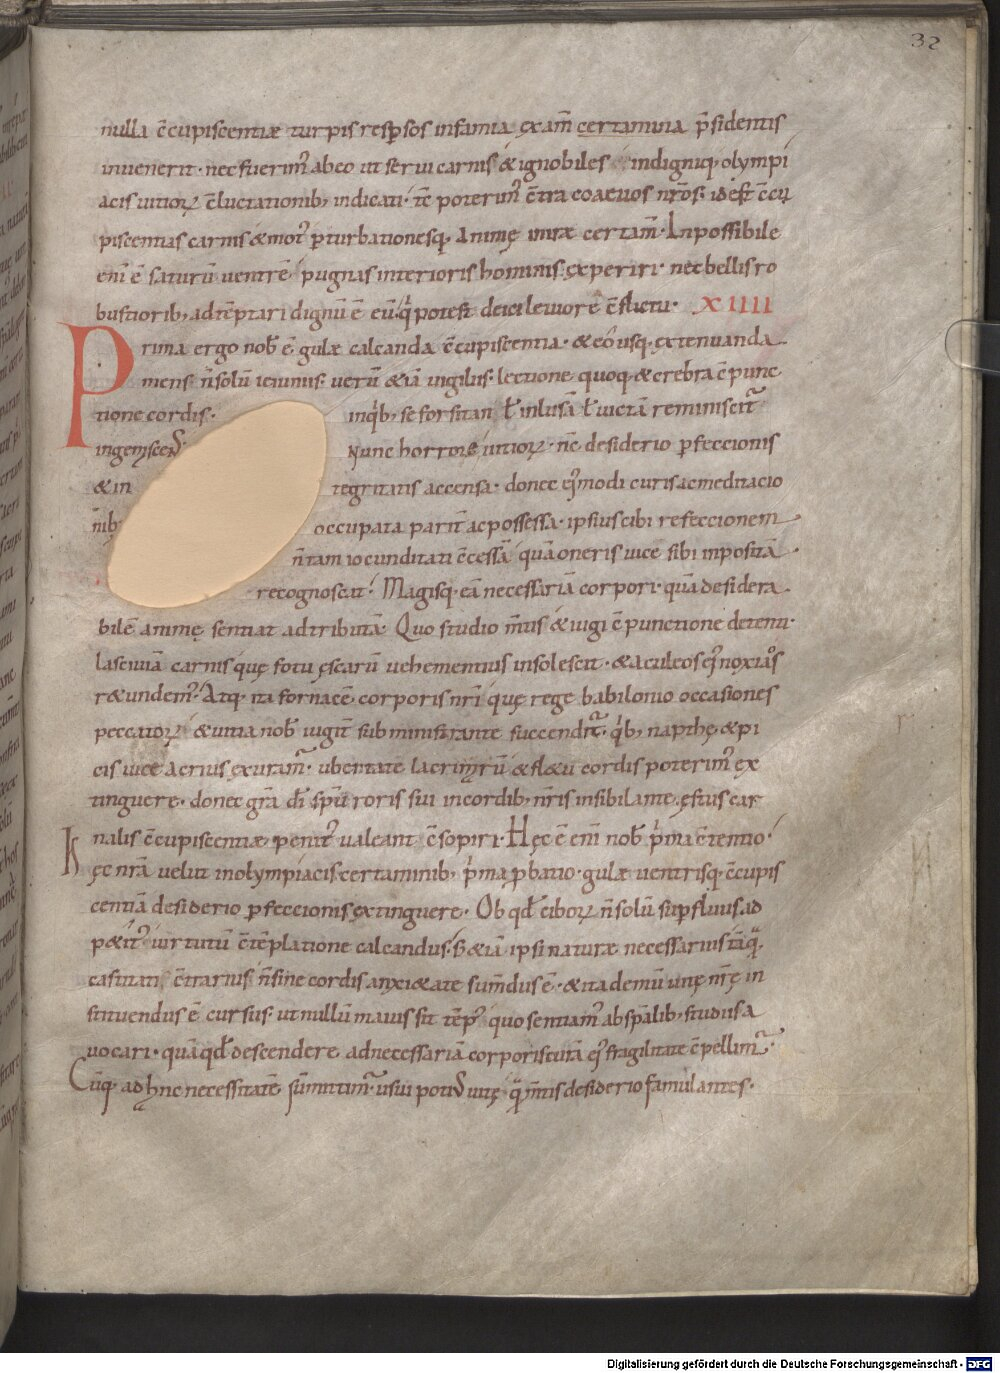 32
nulla c̄cupiscentiæ turpis resp̱sos infamia. exam̄ certamina p̄sidentis
invenerit · nec fuerim᷒ ab eo ut servi carnis & ignobiles indigniq; olympi
acis vitioꝝ c̄luctationib; indicati · tc̄ poterim᷒ c̄tra coaevos nr̄os · id est c̄cu
piscentias carnis & mot᷒ p̱turbationesq; animę inire certam̄ · Inpossibile
eni ē saturū ventrē pugnas interioris hominis expeririˑ nec bellis ro
bustiorib; adtēptari dignū ē eū q̇ potest deici leviore c̄flictu · XIIII
Prima ergo nob̄ ē gulæ calcanda c̄cupiscentia · & eo usq; extenuanda
mens · n̄ solū ieiuniis · verū & iā vigiliis · lectione quoq; & crebra c̄punc
tione cordis · inq̇b; se forsitan ł inlusā ł victā reminiscit᷒
ingemiscens Nunc horrore vitioꝝ · nc̄ desiderio p̱feccionis
& in tegritatis accensa · donec ei᷒modi curis ac meditacio
nib; occupata parit᷒ ac possessa · ipsius cibi refeccionem
n̄ tam iocunditati c̄cessā quā oneris vice sibi inpositā ·
recognoscat · Magisq; eā necessariā corpori · quā desidera
bilē animę sentiat adtributā · Quo studio m̄tis & iugi c̄punctione detenti ·
lasciviā carnis quę fotu escarū vehementius insolescit · & aculeos ei᷒ noxios
r&undem᷒ · Atq; ita fornacē corporis nr̄i quę rege babilonio occasiones
peccatoꝝ & vitia nob̄ iugit᷒ subministrante succendit᷒ · q̇b; napthę & pi
cis vice acrius exuram᷒ · ubertate lacrimarū & fl&u cordis poterim᷒ ex
tinguere · donec gr̄a dī sp̄u roris sui in cordib; nr̄is insibilante · ęstus car
nalis c̄cupiscentiæ penit᷒ valeant c̄sopiri · Hęc ē eni nob̄ p̄ma c̄tentio ·
hęc nr̄a velut in olympiacis certaminib; p̄ma p̱batio · gulæ ventrisq; c̄cupis
centiā desiderio p̱feccionis extinguere · Ob qđ ciboꝝ n̄ solū sup̱fluus ad
p&it᷒ virtutū c̄tēplatione calcandus · s; & iā ipsi naturæ necessarius tāqā
castitati c̄trarius n̄ sine cordis anxi&ate sumdus ē · & ita demū vitę nr̄ę in
stituendus ē cursus · ut nullū mavis sit tēp᷒ quo sentiam᷒ ab sp̄alib; studiis a
vocari · quā qđ descendere ad necessariā corporis curā ei᷒ fragilitate c̄pellim᷒ ·
Cūq; ad hanc necessitatē sūmittim᷒ · usui poti᷒ vitę qā m̄tis desiderio famulantes ·
Digitalisierung gefördert durch die Deutsche Forschungsgemeinschaft - DFG